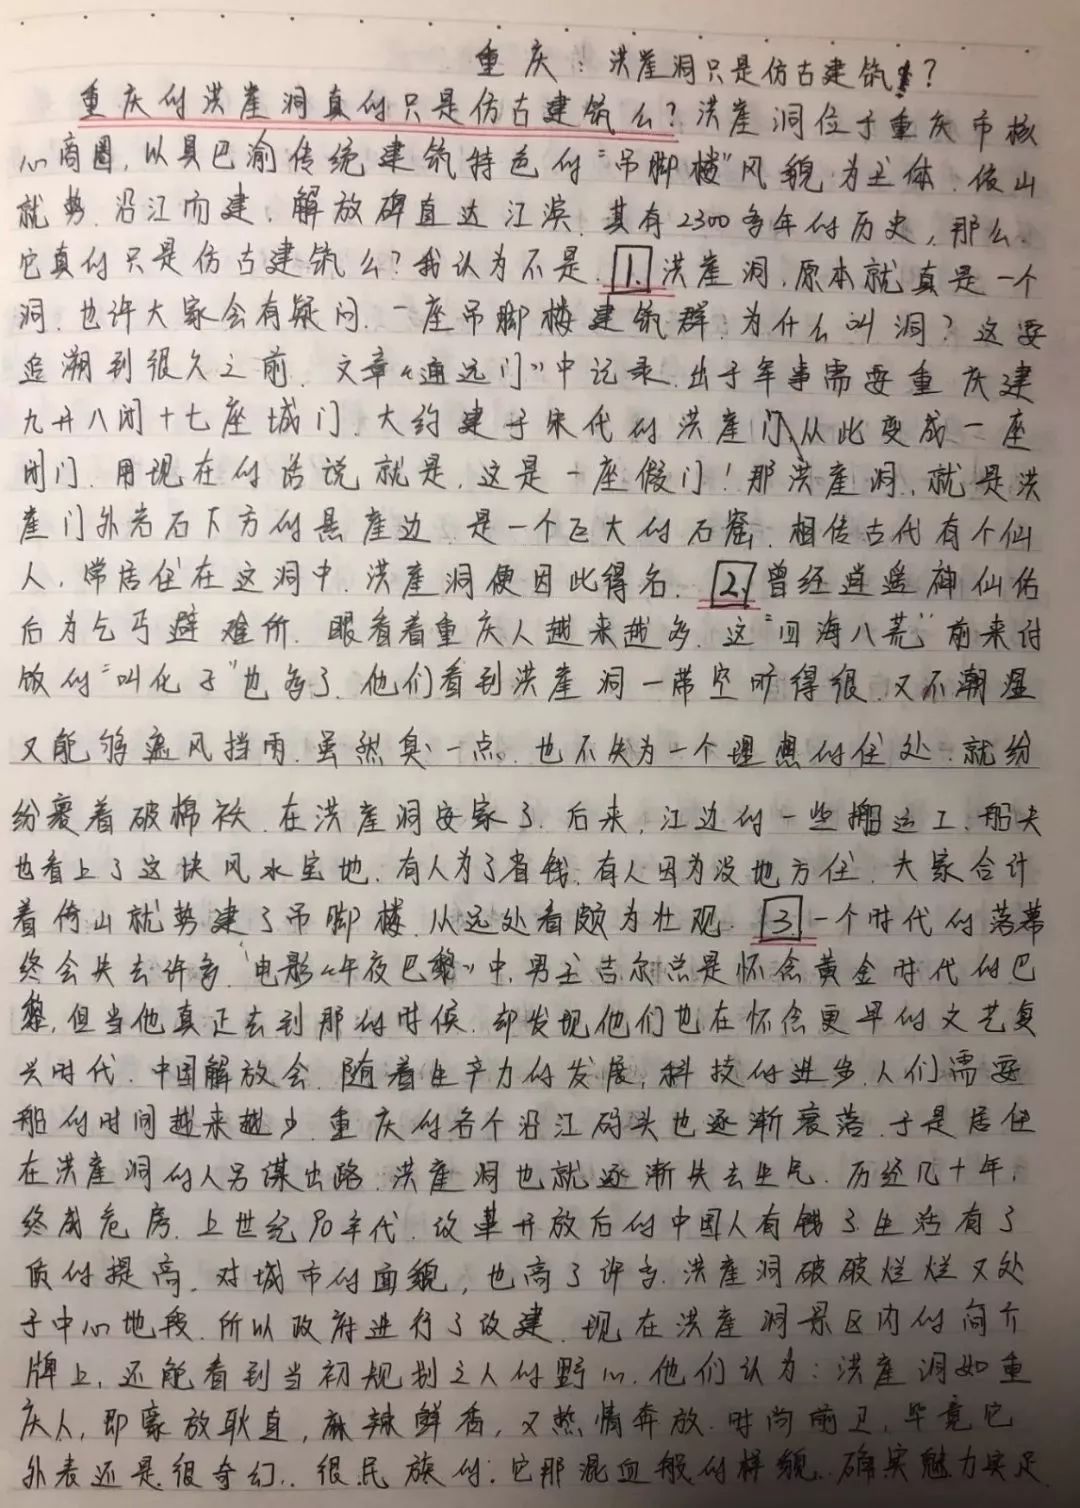 重庆：洪崖洞只是仿古建筑？
重庆的洪崖洞真的只是仿古建筑么？洪崖洞位于重庆市核
心商圈，以具巴渝传统建筑特色的“吊脚楼”风貌为主体，依山
就势，沿江而建，解放碑直达江滨，其有2300多年的历史，那么，
它真的只是仿古建筑么？我认为不是，1.洪崖洞，原本就真是一个
洞，也许大家会有疑问，一座吊脚楼建筑群，为什么叫洞？这要
追溯到很久之前，文章《通远门》中记录，出于军事需要重庆建
九开八闭十七座城门，大约建于宋代的洪崖门从此变成一座
闭门，用现在的话说就是，这是一座假门！那洪崖洞，就是洪
崖门外岩石下方的悬崖边，是一个巨大的石窟，相传古代有个仙
人，常居住在这洞中，洪崖洞便因此得名，2.曾经逍遥神仙佑
后为乞丐避难所，眼看着重庆人越来越多，这“四海八荒”前来讨
饭的“叫化子”也多了，他们看到洪崖洞一带空旷得很，又不潮湿
又能够遮风挡雨，虽然臭一点，也不失为一个理想的住处，就纷
纷裹着破棉袄，在洪崖洞安家了，后来，江边的一些搬运工、船夫
也看上了这块风水宝地，有人为了省钱，有人因为没地方住，大家合计
着倚山就势建了吊脚楼，从远处看颇为壮观，3一个时代的落幕
终会失去许多，电影《午夜巴黎》中，男主吉尔总是怀念黄金时代的巴
黎，但当他真正去到那的时候，却发现他们也在怀念更早的文艺复
兴时代，中国解放会，随着生产力的发展，科技的进步，人们需要
船的时间越来越少，重庆的各个沿江码头也逐渐衰落，于是居住
在洪崖洞的人另谋出路，洪崖洞也就逐渐失去生气，历经几十年，
终成危房，上世纪90年代，改革开放后的中国人有钱了生活有了
质的提高，对城市的面貌，也高了许多，洪崖洞破破烂烂又处
于中心地段，所以政府进行了改建，现在洪崖洞景区内的简介
牌上，还能看到当初规划之人的野心，他们认为：洪崖洞如重
庆人，即豪放耿直，麻辣鲜香，又热情奔放，时尚前卫，毕竟它
外表还是很奇幻，很民族的，它那混血般的样貌，确实魅力实足